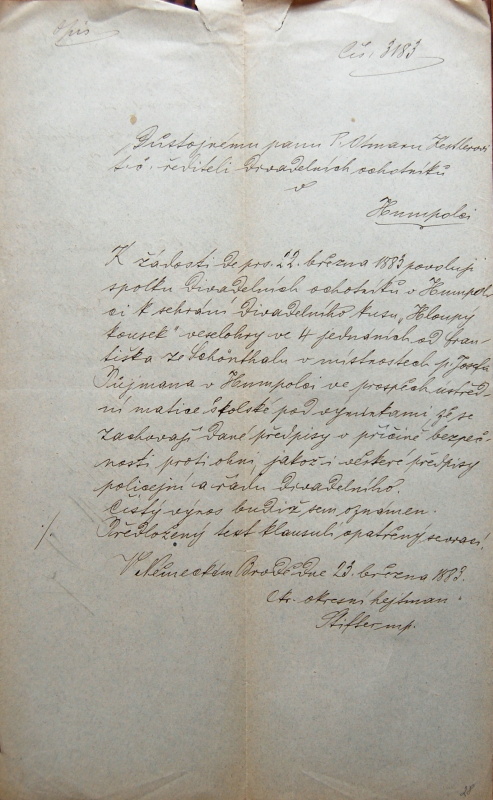 Opis
Čís. 3183
Důstojnému panu P. Otmaru
t. č. řediteli divadelních ochotníků
v
Humpolci
K žádosti de prs. 22. března 1883 povoluji
spolku divadelních ochotníků v Humpol-
ci k sehrání divadelního kusu „Hloupý
kousek" veselohry ve 4 jednáních od Fran-
tiška ze Schönthalu v místnostech p. Josefa
v Humpolci ve prospěch ústřed-
ní matice školské pod výminkami, že se
zachovají dané předpisy v příčině bezpeč-
nosti proti ohni jakož i veškeré předpisy
policejní a řádu divadelního.
Čistý výnos budiž sem oznámen.
./. Předložený text klausulí opatřený se vrací.
V Německém Brodě dne 23. března 1883.
C. k. okresní hejtman.
Stifter mp.
28